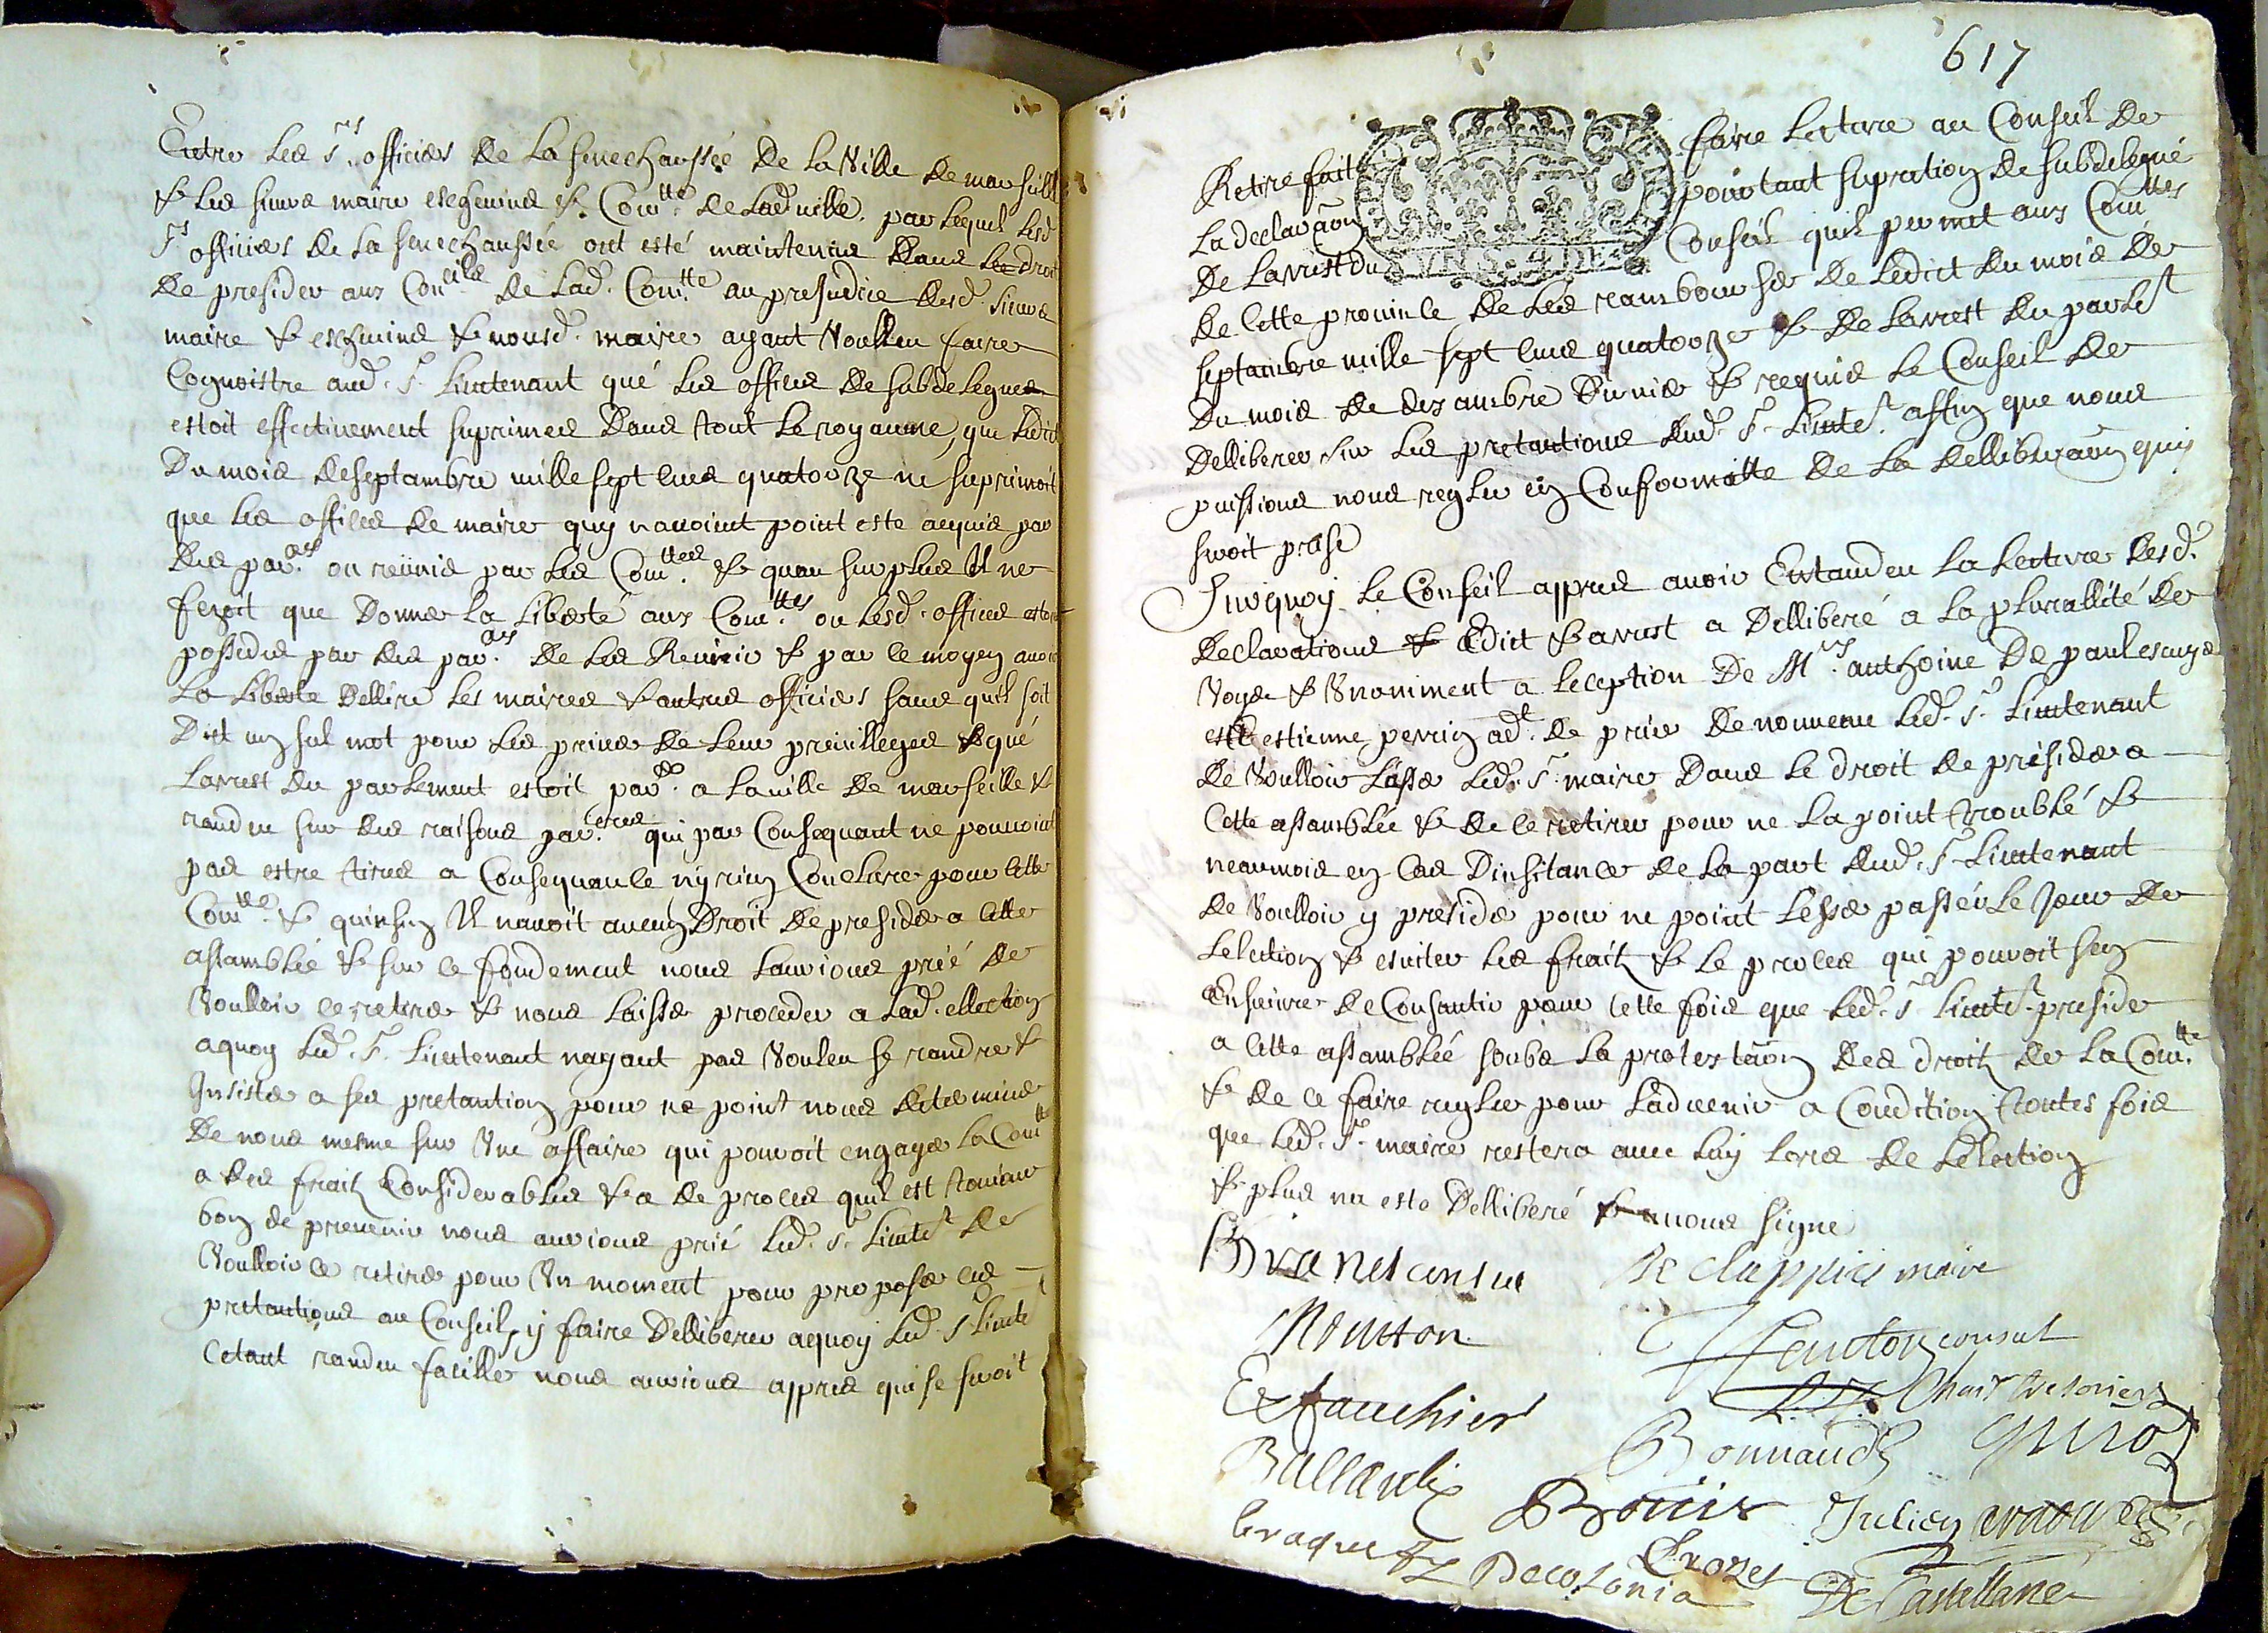 Entre Les Srs officiers De La senechaussée De La Ville De marseille
& Les sieurs maire eschevins & Comtte De Lad ville, par Lequel Lesd
Srs officiers De La senechaussée ont esté maintenus Dans Le droit
De presider aux Conceils De Lad. Comtte au presudice Desd. sieurs
maire & eschevins & nousd. maire ayant Voulleu faire
Cognoistre aud. Sr. Lieutenant qué Les offices De subdelegues
estoit effectivement suprimees Dans tout Le royaume, que Ledict
Du mois de septambre mille sept cens quatorze ne suprimoit
que Les offices De maire quy navoint point este acquis par
Des pars. ou reünis par Les Comttees. & quau surplus Il ne
fezoit que Donner La Liberté aux Comttes. ou Lesd. offices estoit
possedes par Des pars. De Les Reunir & par ce moyen avoir
La Liberte Dellire Les maires & autres officiers sans quil soit
Dit un sul mot pour Les priver De Leur privilleges & qué
Larrest Du parlement estoit parer. a La ville De marseille &
randu sur Des raisons parceres. qui par Consequant ne pouvoint
pas estre tires a Consequance ny rien Conclure pour cette
Comtte. & quinsin Il navoit aucun Droit De presider a cette
assamblée & sur ce fondement nous Lavrions prié De
Voulloir ce retirer & nous Laisser proceder a Lad. ellection
aquoy Led. Sr. Lieutenant nayant pas Voulu se randre &
Insister a ses pretantion pour ne point nous determiner
De nous mesme sur Une affaire qui pouvoit engager La Comtte
a des fraitz Considerables & a De proces quil est toujour
bon de prevenir nous aurions prié Led. Sr. Lieutet De
Voulloir ce retirer pour Un moment pour proposer ces
pretantions au Conseil, y faire Delliberer aquoy Led. Sr Lieute
Cetant randu facille nous aurions appres qui se seroit
617
Retire fait faire Lecture au Conseil De
La declaraõn portant supration De subdelegué
De Larrest du Conseil quil permet aux Comttes
De cette province De Les rambourser De Ledict du mois De
septambre mille sept cens quatorze & De Larrest du parlet
Du mois De dezambre Dernier & requis Le Conseil De
Delliberer sur Les pretantions dud. Sr. Lieutet. affin que nous
puissions nous regler en Conformitte De La delliberaõn quy
seroit prise
Surquoy Le Conseil appres avoir Entandeu La Lecture desd.
Declarations & Edict & arrest a Delliberé a La plurallité De
Voye & Unoniment a Leception De Mrs anthoine De paul escuyer
estienne perrin adt. De prier De nouveau Led. Sr. Lieutenant
De Voulloir Lasser Led. Sr. maire Dans Le droit De présider a
Cette assamblée & De ce retirer pour ne La point troublé &
neaumois en cas Dinsitance De La part dud. Sr Lieutenant
De Voulloir y presider pour ne point Lesser passer Le Jour De
Lelection & esviter Les fraitz & Le proces qui pouvoit sen
Ensuivre De Consantir pour cette fois que Led. Sr Lieutet. preside
a cette assamblée soubs La protestaõn Des droitz De La Comtte.
& De ce faire regler pour Ladvenir a Condition toutes fois
que Led. Sr. maire restera avec Luy Lors De Lelection
& plus na este Delliberé & avons signe
Brunet consul De Clappiers maire
Mouton
consul
Exfauchier
Bonnaud
Ballardy
Bouis Julien
braquety Decolonia Crozet De Castellane